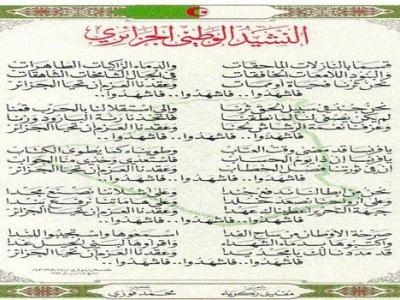 النشيد الوطني الجزائري
قسما بالنازلات الماحقات والدماء الزاكيات الطاهرات
والبنود اللامعات الخافقات في الجبال الشامخات الشاهقات
نحن ثرنا فحياة أو ممات وعقدنا العزم أن تحيا الجزائر
فاشهدوا.. فاشهدوا.. فاشهدوا..
نحن جند في سبيل الحق ثرنا وإلى استقلالنا بالحرب قمنا
لم يكن يصغى لنا لما نطقنا فاتخذنا رنة البارود وزنا
وعزفنا نغمة الرشاش لحنا وعقدنا العزم أن تحيا الجزائر
فاشهدوا.. فاشهدوا.. فاشهدوا..
يا فرنسا قد مضى وقت العتاب وطويناه كما يطوى الكتاب
يا فرنسا إن ذا يوم الحساب فاستعدي وخذي منا الجواب
إن في ثورتنا فصل الخطاب وعقدنا العزم أن تحيا الجزائر
فاشهدوا.. فاشهدوا.. فاشهدوا..
نحن من أبطالنا ندفع جندا وعلى أشلائنا نصنع مجدا
وعلى هاماتنا نرفع بندا
جبهة التحرير أعطيناك عهدا وعقدنا العزم أن تحيا الجزائر
فاشهدوا.. فاشهدوا.. فاشهدوا..
صرخة الأوطان من ساح الفدا اسمعوها واستجيبوا للندا
واكتبوها بدماء الشهداء واقرأوها لبني الجيل غدا
قد مددنا لك يا مجد يدا وعقدنا العزم أن تحيا الجزائر
فاشهدوا.. فاشهدوا.. فاشهدوا..
مفدي زكرياء
محمد فوزي